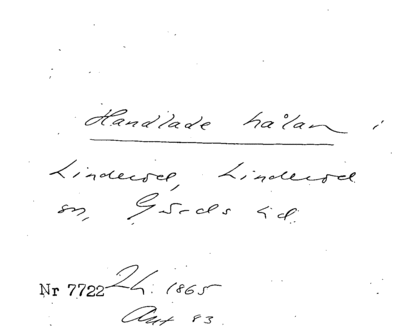 Handlade hålan i
Linderöd, Linderöd
sn, Gärds hd.
Nr 7722 Lh. 1865
Ant 83